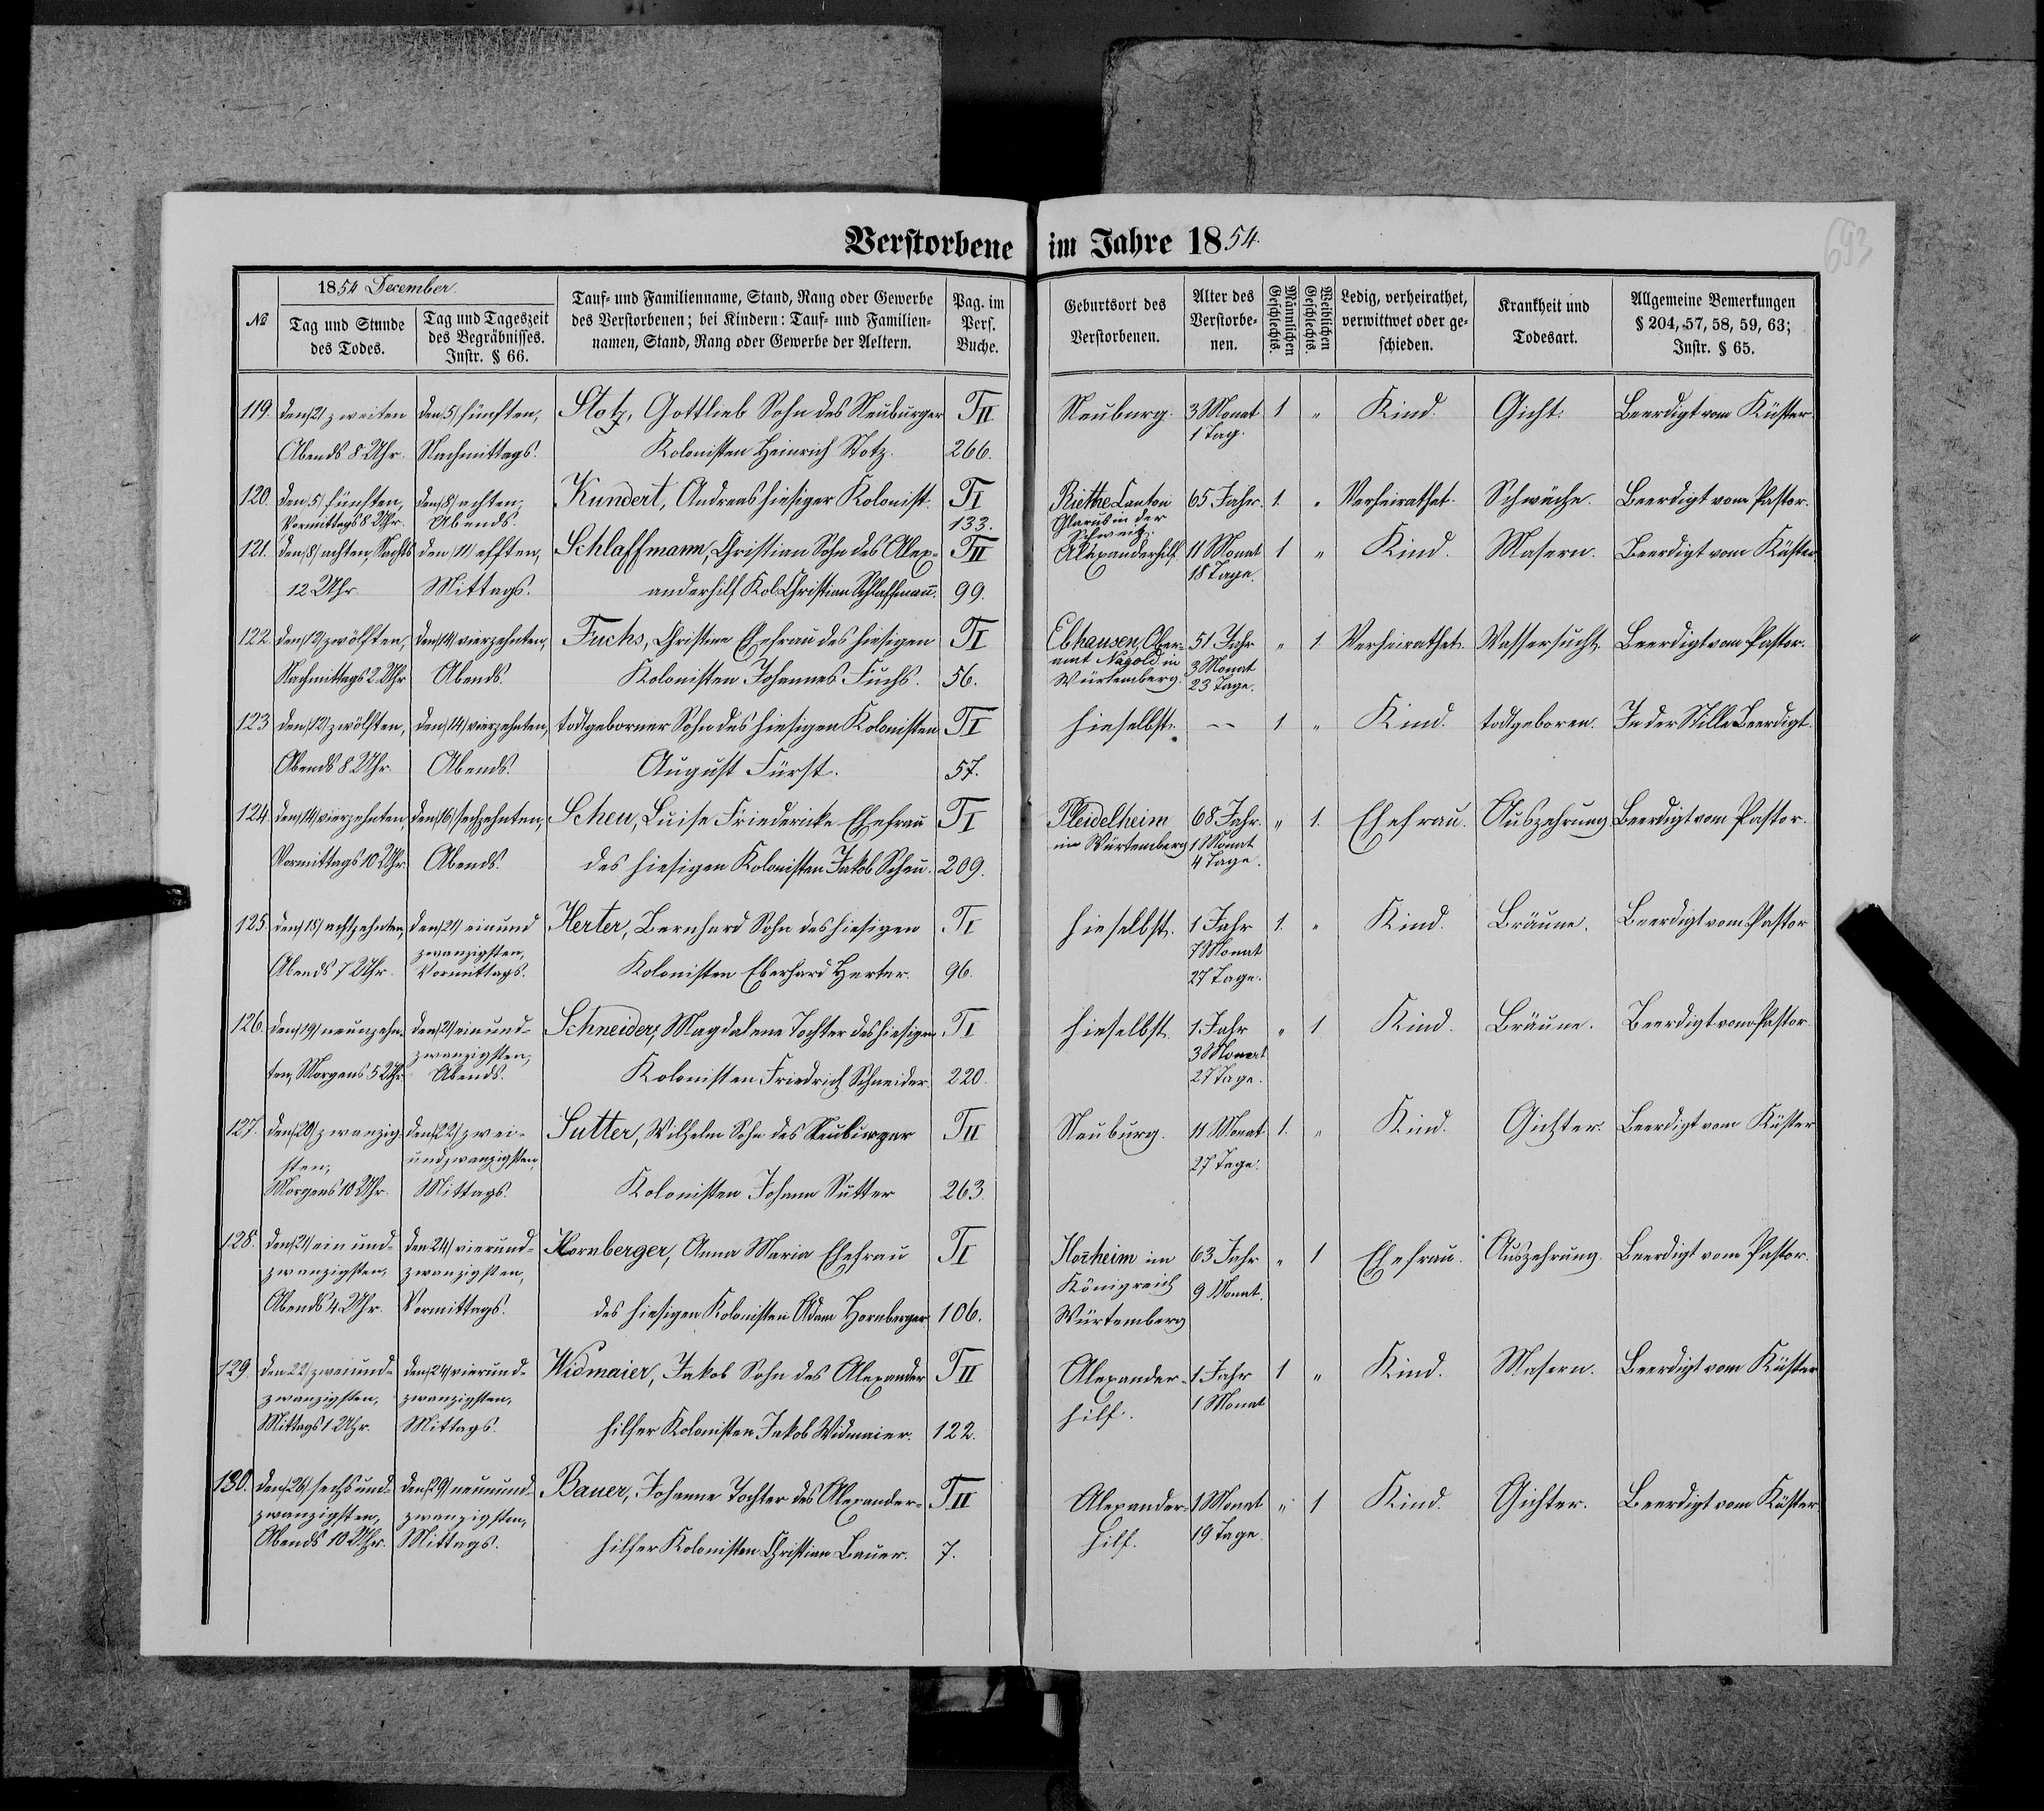 Verstorbene im Jahre 1854.
693
№
1854 December.
Tag und Stunde
des Todes.
Tag und Tageszeit
des Begräbnisses.
Instr. § 66.
Tauf- und Familienname, Stand, Rang oder Gewerbe
des Verstorbenen; bei Kindern: Tauf- und Familien-
namen, Stand, Rang oder Gewerbe der Aeltern.
Pag. im
Pers.
Buche.
Geburtsort des
Verstorbenen.
Alter des
Verstorbe-
nen.
Männlichen
Geschlechts.
Weiblichen
Geschlechts.
Ledig, verheirathet,
verwittwet oder ge-
schieden.
Krankheit und
Todesart.
Allgemeine Bemerkungen
§ 204, 57, 58, 59, 63;
Instr. § 65.
119. den /2/ zweiten den /5/ fünften, Stotz, Gottlieb Sohn des Neuburger TII Neuburg. 3 Monat 1 " Kind. Gicht. Beerdigt vom Küster.
1 Tag.
Abends 8 Uhr. Nachmittags. Kolonisten Heinrich Stotz. 266.
120. den /5/ fünften, den /8/ achten, Kundert, Andreas hiesiger Kolonist. TI Riethe Canton 65 Jahr. 1. " Verheirathet. Schwäche. Beerdigt vom Pastor.
Vormittags 8 Uhr. Abends. 133. Glarus in der
Schweitz.
121. den /8/ achten, Nachts den /11/ elften, Schlaffmann, Christian Sohn des Alex- TII Alexanderhilf. 11 Monat 1 " Kind. Masern. Beerdigt vom Küster.
18 Tage.
12 Uhr Mittags. anderhilf. Kol. Christian Schlaffmann. 99.
122. den /12/ zwölften, den /14/ vierzehnten, Fuchs, Christine Ehefrau des hiesigen TI Ebhausen, Ober- 51 Jahr " 1 Verheirathet. Wassersucht. Beerdigt vom Pastor.
amt Nagold in 3 Monat
Nachmittags 2 Uhr Abends. Kolonisten Johannes Fuchs. 56. Würtemberg. 23 Tage.
123 den /12/ zwölften, den /14/ vierzehnten, todtgeborner Sohn des hiesigen Kolonisten TI hieselbst. -- 1 " Kind. todtgeboren. In der Stille Beerdigt.
Abends 8 Uhr. Abends. August Fürst. 57.
124. den /14/ vierzehnten, den /16/ sechzehnten, Scheu, Luise Friedericke Ehefrau TI Pleidelheim 68 Jahr. " 1. Ehefrau. Auszehrung Beerdigt vom Pastor.
im Würtemberg 1 Monat
Vormittags 10 Uhr. Abends. des hiesigen Kolonisten Jakob Scheu. 209. 4 Tage.
125. den /18/ achtzehnten, den /21/ einund Herter, Bernhard Sohn des hiesigen TI hieselbst. 1 Jahr 1. " Kind. Bräune. Beerdigt vom Pastor
zwanzigsten, 7 Monat
Abends 7 Uhr. Vormittags. Kolonisten Eberhard Herter. 96. 27 Tage.
126. den /19/ neunzehn- den /21/ einund- Schneider, Magdalena Tochter des hiesigen TI hieselbst. 1. Jahr " 1 Kind. Bräune. Beerdigt vom Pastor.
zwanzigsten, 3 Monat
ten, Morgens 5 Uhr Abends. Kolonisten Friedrich Schneider. 220. 27 Tage.
127. den /20/ zwanzig- den /22/ zwei- Sutter, Wilhelm Sohn des Neuburger TII Neuburg. 11 Monat 1. " Kind. Gichter. Beerdigt vom Küster
sten, undzwanzigsten 27 Tage.
Morgens 10 Uhr. Mittags. Kolonisten Johann Sutter 263.
128. den /21/ ein und- den 24/ vierund- Hornberger, Anna Maria Ehefrau TI Horheim im 63 Jahr " 1 Ehefrau. Auszehrung. Beerdigt vom Pastor.
zwanzigsten, zwanzigsten, Königreich 9 Monat.
Abends 4 Uhr. Vormittags. des hiesigen Kolonisten Adam Hornberger 106. Würtemberg
129. den 22/ zweiund- den /24/ vierund- Widmaier, Jakob Sohn des Alexander TII Alexander- 1 Jahr 1 " Kind. Masern. Beerdigt vom Küster
zwanzigsten, zwanzigsten, hilf. 1 Monat
Mittags 1 Uhr. Mittags. hilfer Kolonisten Jakob Widmaier. 122.
130. den /26/ sechsund- den /29/ neunund- Bauer, Johanne Tochter des Alexander- TII Alexander- 1 Monat " 1 Kind. Gichter. Beerdigt vom Küster
zwanzigsten, zwanzigsten, hilf. 19 Tage.
Abends 10 Uhr. Mittags. hilfer Kolonisten Christian Bauer. 7.